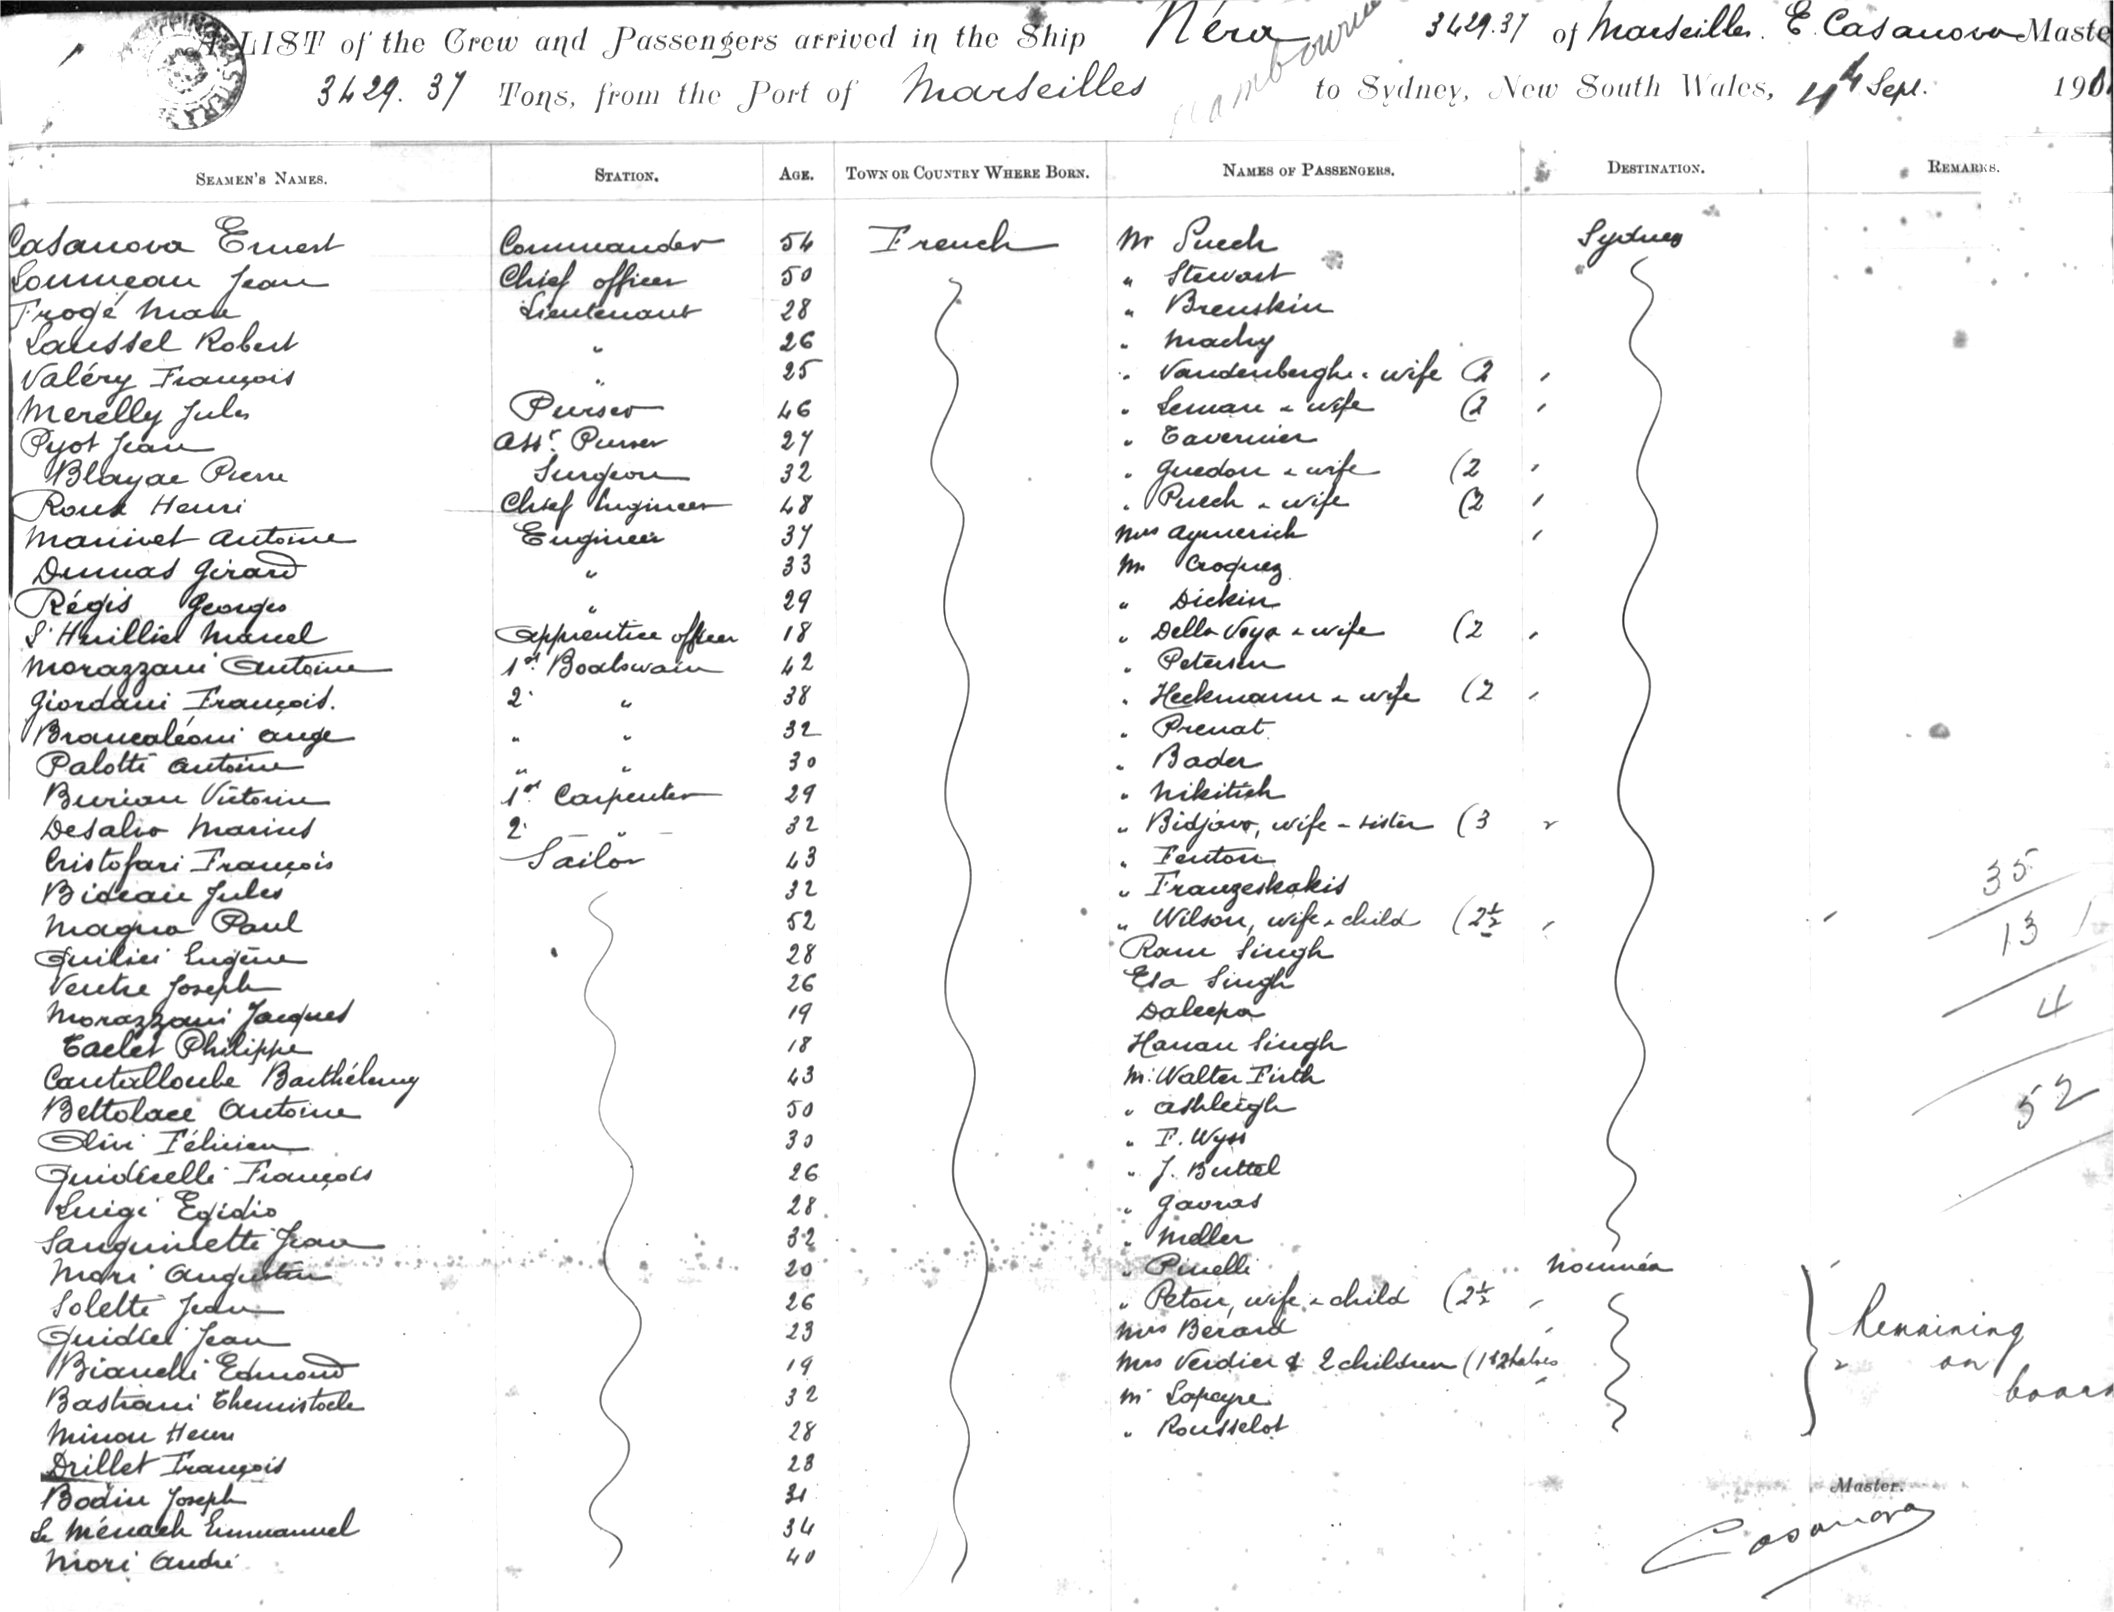 A LIST of the Crew and Passengers arrived in the Ship Néra 3429.37 of Marseilles. E. Casanova Maste
3429.37 Tons, from the Port of Marseilles to Sydney, New South Wales, 4th Sept. 190
SEAMEN'S NAMES. STATION. AGE. TOWN OR COUNTRY WHERE BORN. NAMES OF PASSENGERS. DESTINATION. REMARKS.
Casanova Ernest Commander 54 French Mr Puech Sydney
Jean Chief officer 50 " Stewart
Frogé Max Lieutenant 28 " Brenskin
Laussel Robert " 26 " Machy
Valéry François " 25 " Vandenberghe & wife (2 "
Merelly Jules Purser 46 " Leman & wife (2 "
Pyot Jean Asst. Purser 27 " Tavernier
Blayac Pierre Surgeon 32 " Guedon & wife (2 "
Roux Henri Chief Engineer 48 " Puech & wife (2 "
Marinet Antoine Engineer 37 Mrs Aymerich "
Dumas Girard " 33 Mr Croquez
Régis Georges " 29 " Dickin
L'Huillier Marcel Apprentice officer 18 " Della Voya & wife (2 "
Morazzani Antoine 1st Boatswain 42 " Petersen
Giordani François. 2. " 38 " Heckmann & wife (2 "
Brancaléoni Ange " " 32 " Prenat
Palotti Antoine " " 30 " Bader
Burian Victorin 1st Carpenter 29 " Nikitich
Desalvo Marius 2. " 32 " Bidjavo, wife & sister (3 "
Cristofari François Sailor 43 " Fenton
Bideau Jules 32 " Franzeskakis
35
Magna Paul 52 " Wilson, wife & child (2½ " "
13
Quilici Eugène 28 Ram Singh
Ventre Joseph 26 Esa Singh
Morazzani Jacques 19 Daleepa
4
Taclet Philippe 18 Hanan Singh
Cantalloube Barthélemy 43 Mr. Walter Firth
Bettolacci Antoine 50 " Ashleigh
52
Olivi Félicien 30 " F. Wyss
Guidicelli François 26 " J. Buttel
Luigi Egidio 28 " Gavras
Sanguinetti Jean 32 " Meller
Mori Augustin 20 " Pinelli Nouméa "
Soletti Jean 26 " Peton, wife & child (2½ "
Guidicci Jean 23 Mrs Berard " Remaining
Bianchi Edmond 19 Mrs Verdier & 2 children (1 & 2 halves " on
Bastiani Themistocle 32 Mr Lapeyre " board
Minou Henri 28 " Rousselot
Drillet François 28
Bodin Joseph 31 Master.
Le Ménach Emmanuel 34 Casanova
Mori André 40